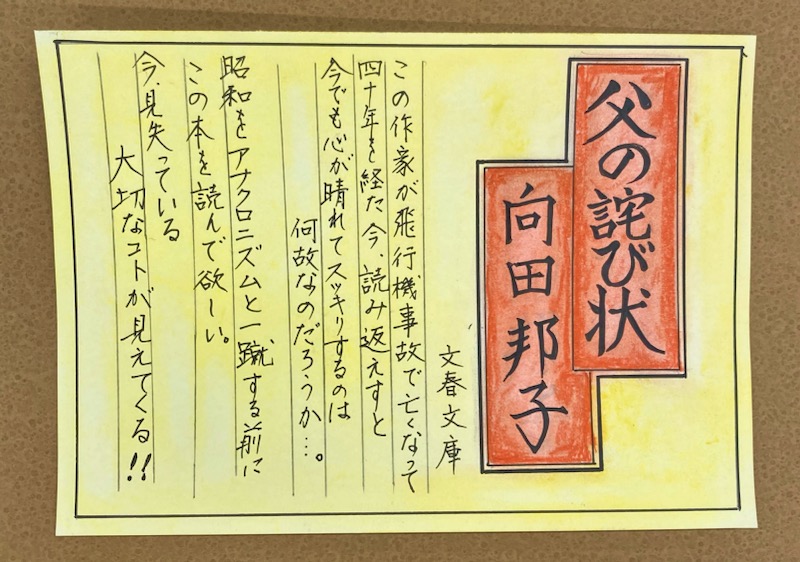 父の詫び状
向田邦子
文春文庫
この作家が飛行機事故で亡くなって
四十年を経た今、読み返えすと
今でも心が晴れてスッキリするのは
何故なのだろうか…。
昭和をアナクロニズムと一蹴する前に
この本を読んで欲しい。
今、見失っている
大切なコトが見えてくる!!